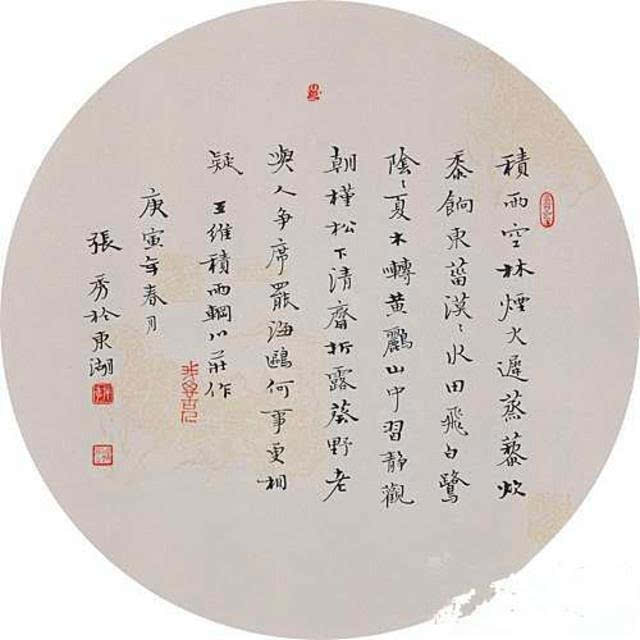 積雨空林煙火遲蒸藜炊
黍餉東菑漠〻水田飛白鷺
陰〻夏木囀黄鸝山中習静觀
朝槿松下清齋折露葵野老
與人争席罷海鷗何事更相
疑 王維積雨輞川莊作
庚寅年春月
張秀於東湖